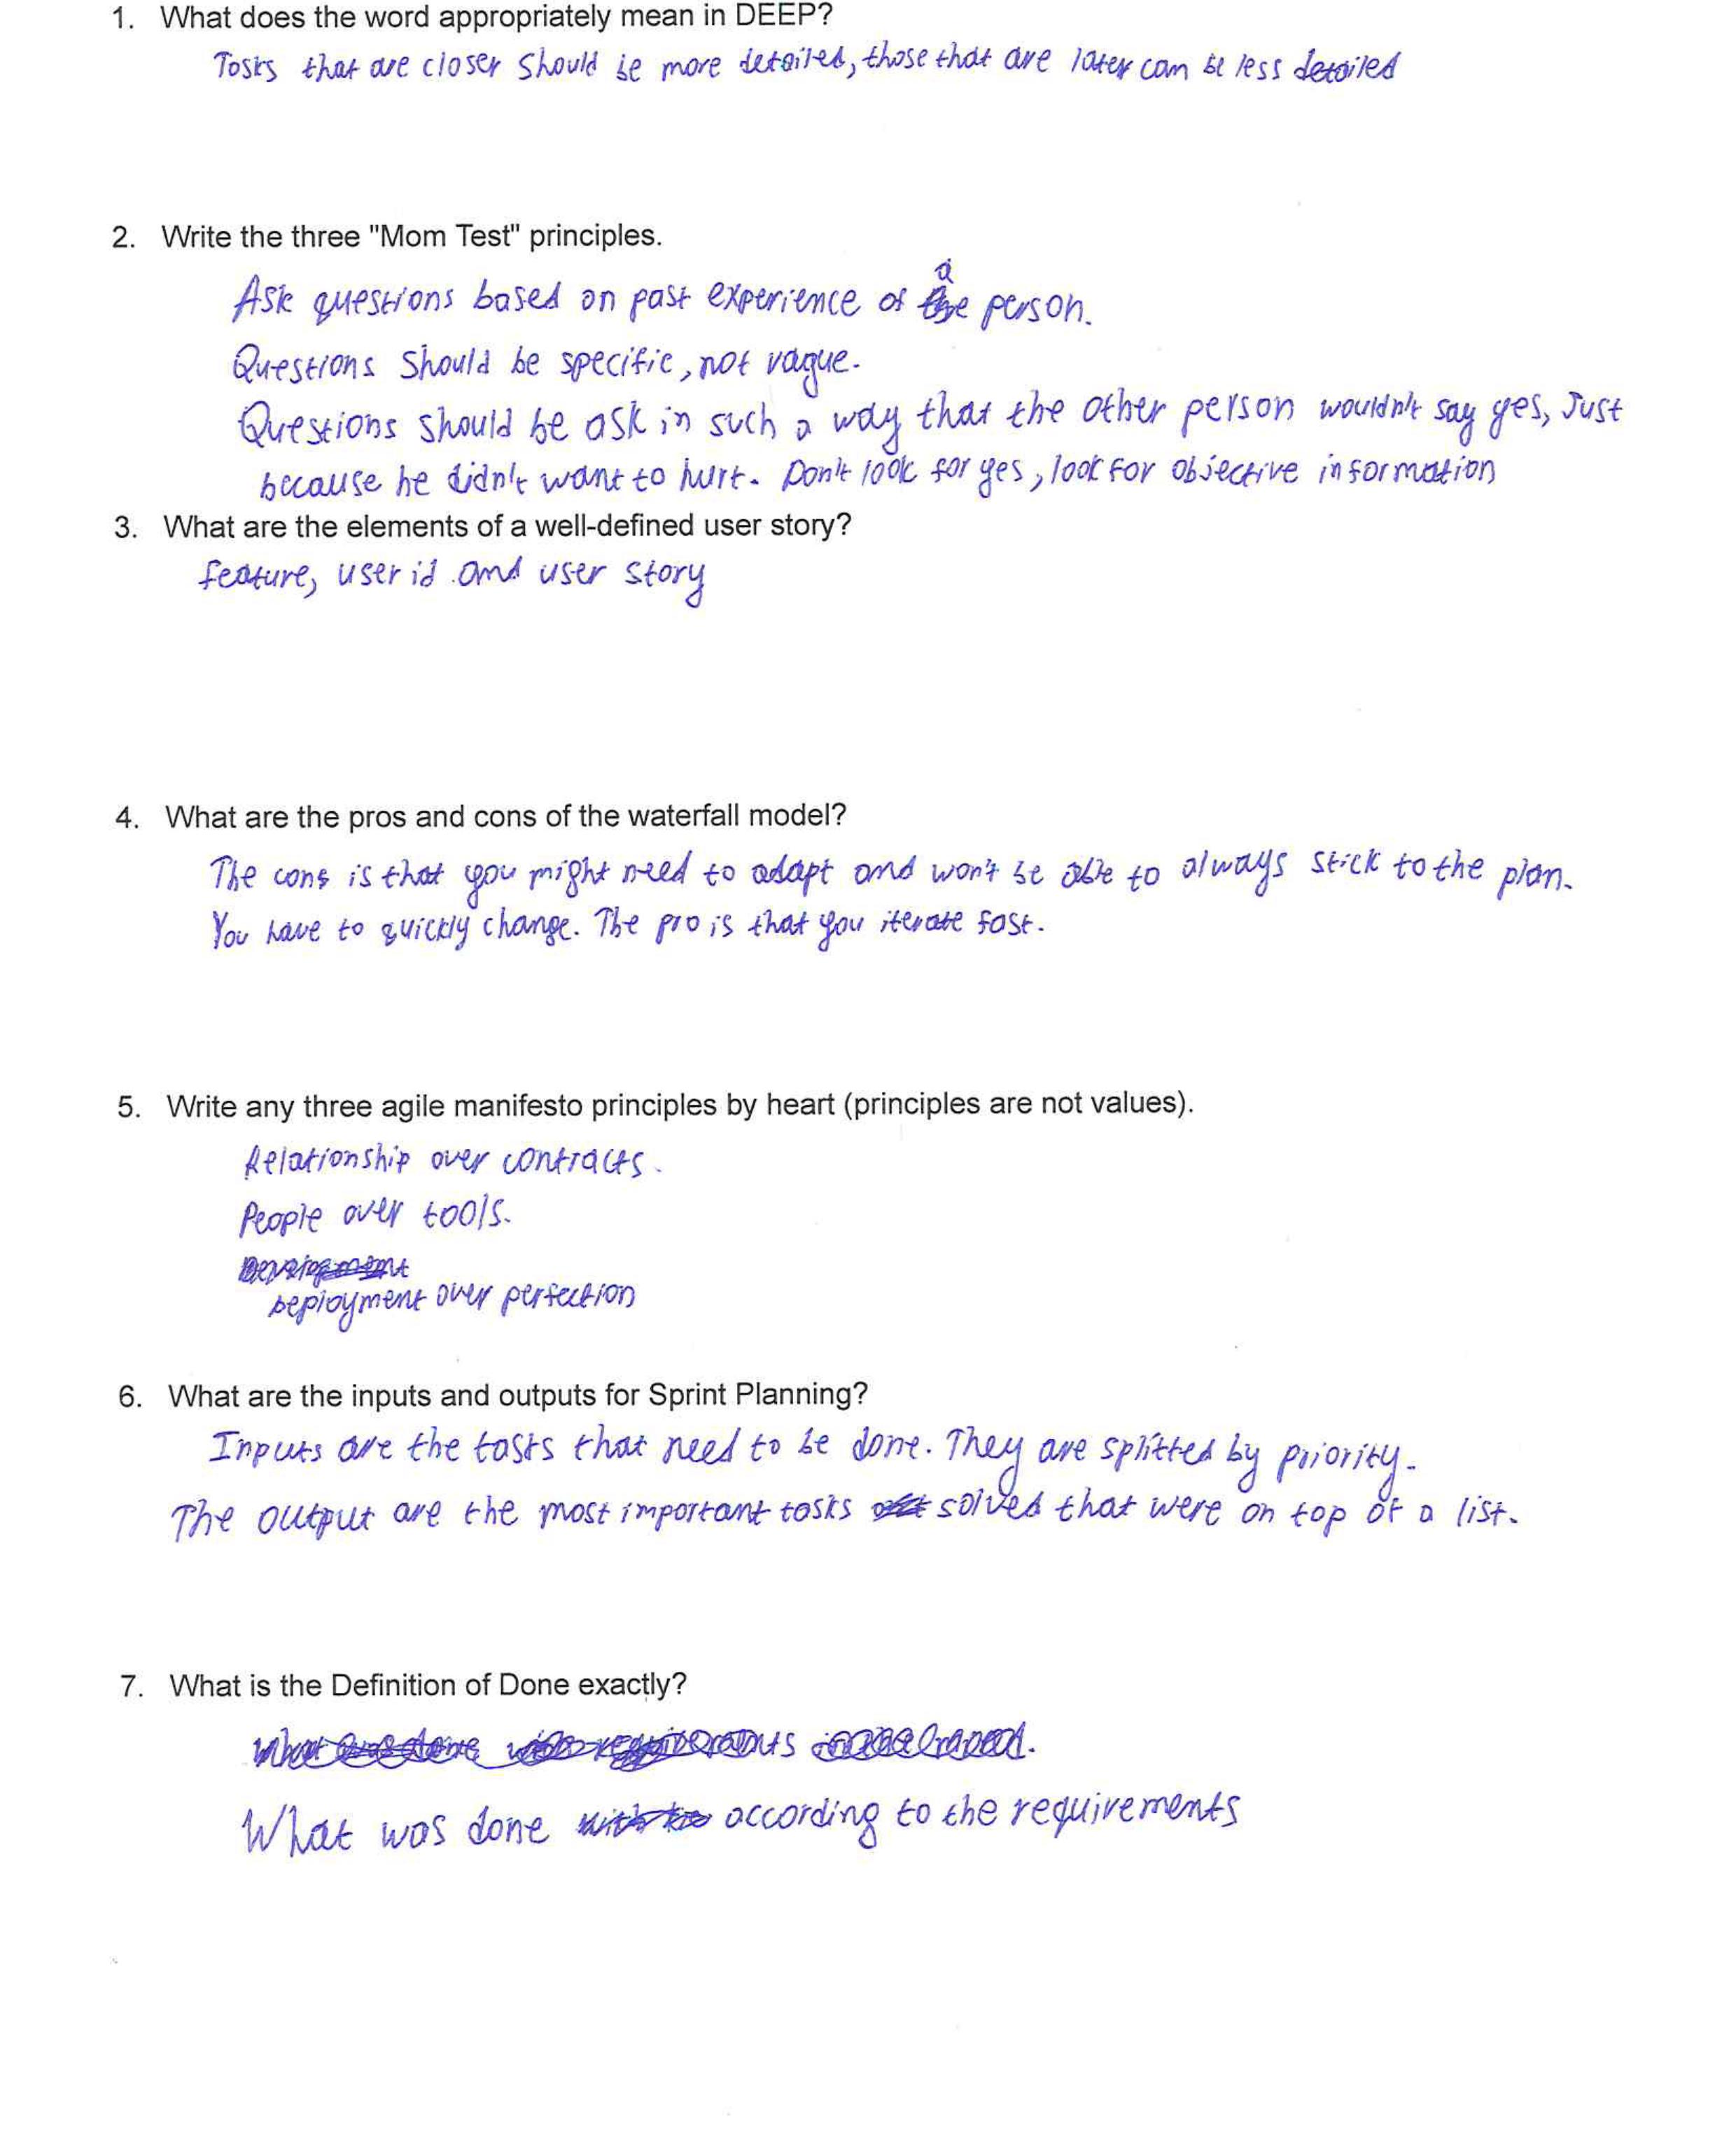 1. What does the word appropriately mean in DEEP?
Tasks that are closer should be more detailed, those that are later can be less detailed
2. Write the three "Mom Test" principles.
a
Ask questions based on past experience of the person.
Questions should be specific, not vague.
Questions should be ask in such a way that the other person wouldn't say yes, Just
because he didn't want to hurt. Don't look for yes, look for objective information
3. What are the elements of a well-defined user story?
feature, user id and user story
4. What are the pros and cons of the waterfall model?
The cons is that you might need to adapt and won't be able to always stick to the plan.
You have to quickly change. The pro is that you iterate fast.
5. Write any three agile manifesto principles by heart (principles are not values).
Relationship over contracts.
People over tools.
Development
Deployment over perfection
6. What are the inputs and outputs for Sprint Planning?
Inputs are the tasks that need to be done. They are splitted by priority.
The output are the most important tasks solved that were on top of a list.
7. What is the Definition of Done exactly?
What was done requirements
What was done with the according to the requirements